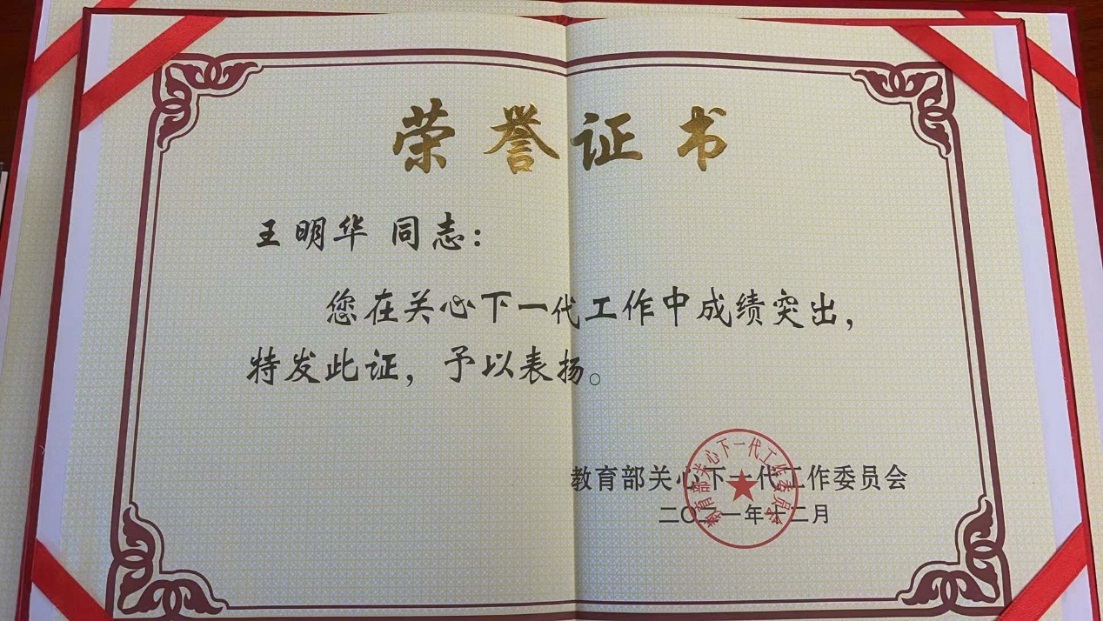 荣誉证书
王明华 同志：
您在关心下一代工作中成绩突出，
特发此证，予以表扬。
教育部关心下一代工作委员会
二〇二一年十二月
教育部关心下一代工作委员会